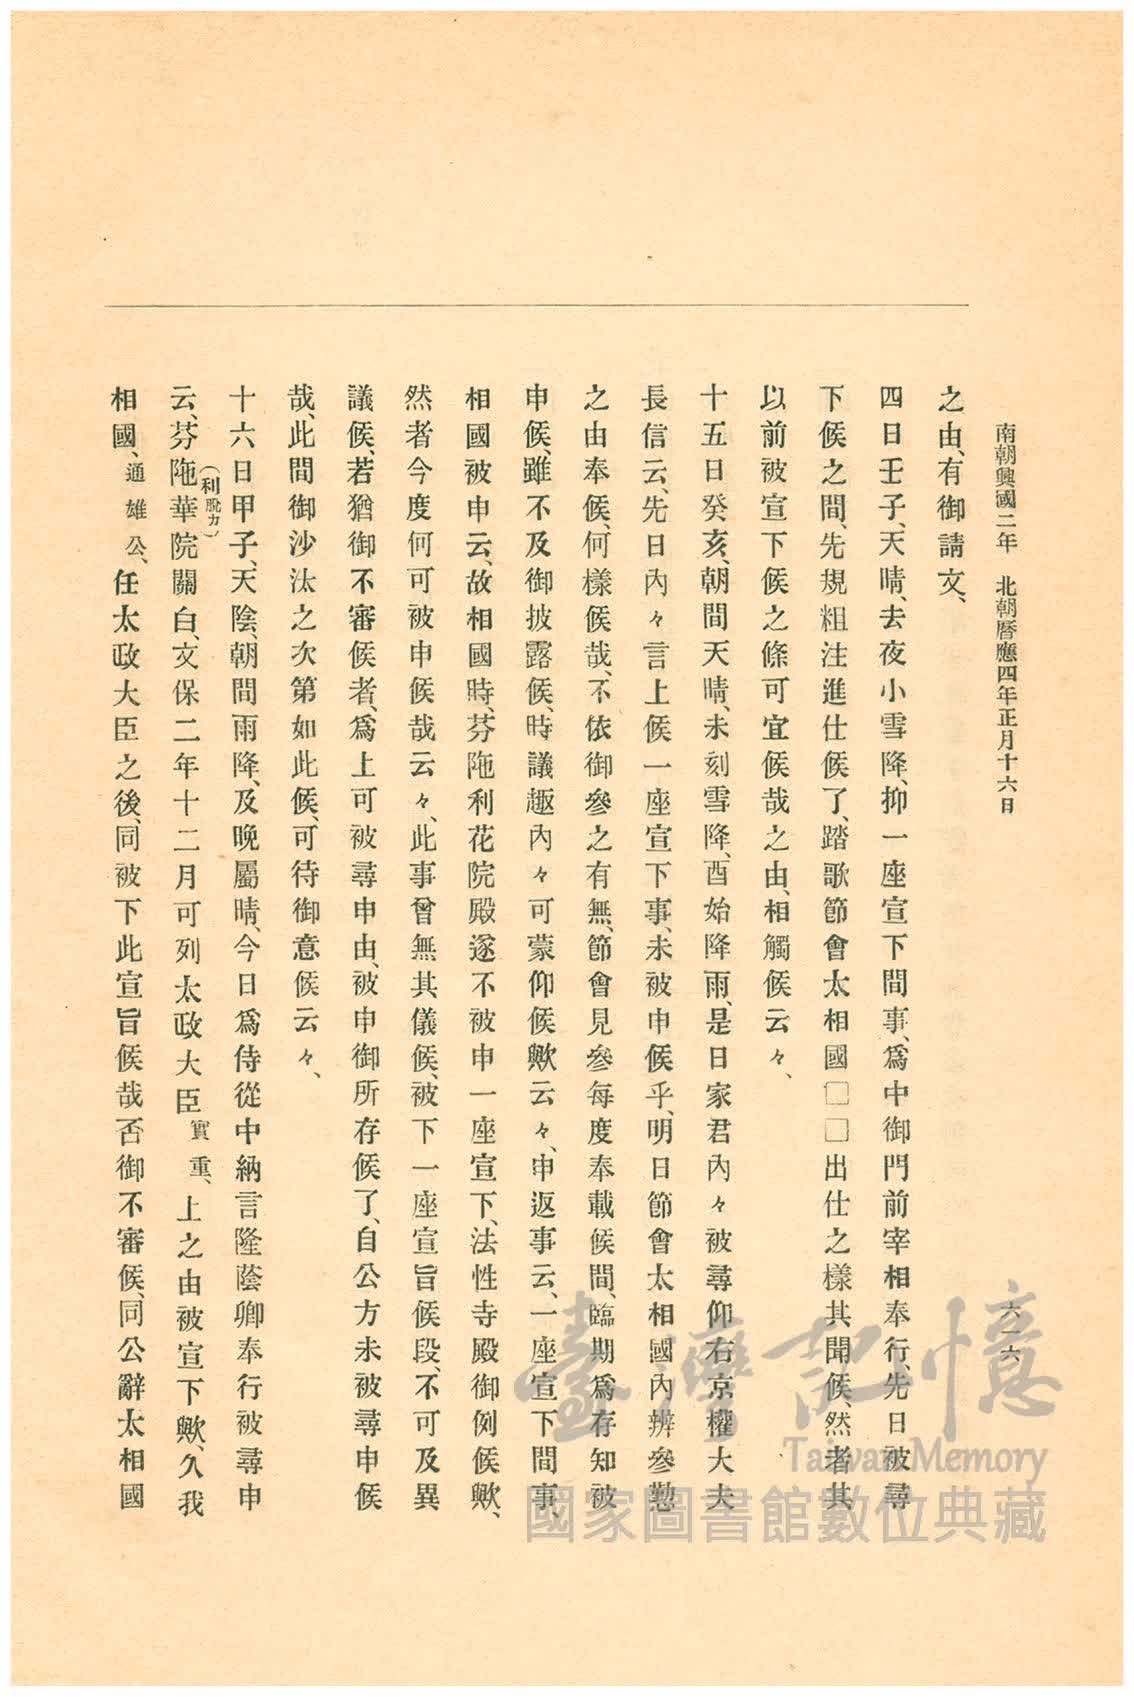 南朝興國二年　北朝曆應四年正月十六日
六一六
之由、有御請文、
四日壬子、天晴、去夜小雪降、抑一座宣下間事、爲中御門前宰相奉行、先日被尋
下候之間、先規粗注進仕候了、踏歌節會太相國□□出仕之樣其聞候、然者其
以前被宣下候之條可宜候哉之由、相觸候云々、
十五日癸亥、朝間天晴、未刻雪降、酉始降雨、是日家君內々被尋仰右京權大夫
長信云、先日內々言上候一座宣下事、未被申候乎、明日節會太相國內辨參懃
之由奉候、何樣候哉、不依御參之有無、節會見參每度奉載候間、臨期爲存知被
申候、雖不及御披露候、時議趣內々可蒙仰候歟云々、申返事云、一座宣下間事、
相國被申云、故相國時、芬陁利花院殿遂不被申一座宣下、法性寺殿御例候歟、
然者今度何可被申候哉云々、此事曾無其儀候、被下一座宣旨候段、不可及異
議候、若猶御不審候者、爲上可被尋申由、被申御所存候了、自公方未被尋申候
哉、此間御沙汰之次第如此候、可待御意候云々、
十六日甲子、天陰、朝間雨降、及晚屬晴、今日爲侍從中納言隆蔭卿奉行被尋申
云、芬陁（利脫カ）華院關白、文保二年十二月可列太政大臣實重、上之由被宣下歟、久我
相國、通雄公、任太政大臣之後、同被下此宣旨候哉否御不審候、同公辭太相國
臺灣記憶
Taiwan Memory
國家圖書館數位典藏